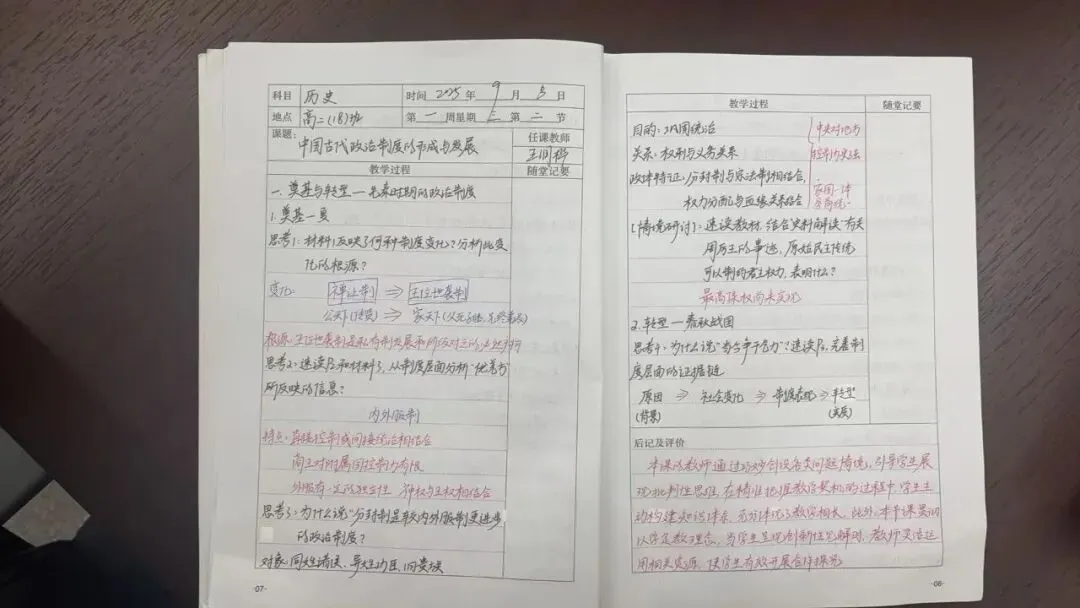 科目 历史 时间 2025 年 9 月 3 日
地点 高二(18)班 第 一 周星期 三 第 二 节
课题: 任课教师
中国古代政治制度的形成与发展
教学过程 随堂记要
一.奠基与转型—先秦时期的政治制度
1.奠基—夏
思考1:材料1反映了何种制度变化?分析此变
化的根源?
变化: 禅让制 ⇒ 王位世袭制
公天下(传贤) ⇒ 家天下(父死子继,兄终弟及)
根源:王位世袭制是私有制发展和阶级对立的必然产物
思考2:速读P2和材料3,从制度层面分析
所反映的信息?
内外服制
特点:直接控制或间接统治相结合
商王对附属国控制力有限
外服有一定的独立性 神权与王权相结合
思考3:为什么说"分封制是较内外服制更进步
的政治制度?
对象:同姓诸侯、异姓功臣、旧贵族
·07·
教学过程 随堂记要
目的:巩固统治 中央对地方
关系:权利与义务关系 控制力
政体特征:分封制与宗法制相结合, 家国一体
权力分配与血缘关系结合
[情境研讨]:速读教材,结合史料解读有关
周厉王的事迹,原始民主传统
可以制约君主权力,表明什么?
最高集权尚未实现
2.转型—春秋战国
思考4:为什么说"当今争于气力"?速读P3,完善制
度层面的证据链
原因 ⇒ 社会变化 ⇒ 制度表现 ⇒ 转型
(背景) (实质)
后记及评价
本课教师通过巧妙创设各类问题情境,引导学生展
现批判性思维,在精准把握教学契机的过程中,学生主
动构建知识体系,充分体现了教学相长,此外,本节课贯彻
以学定教理念,当学生呈现创新性见解时,教师灵活运
用相关资源,使学生有效开展合作探究
·08·